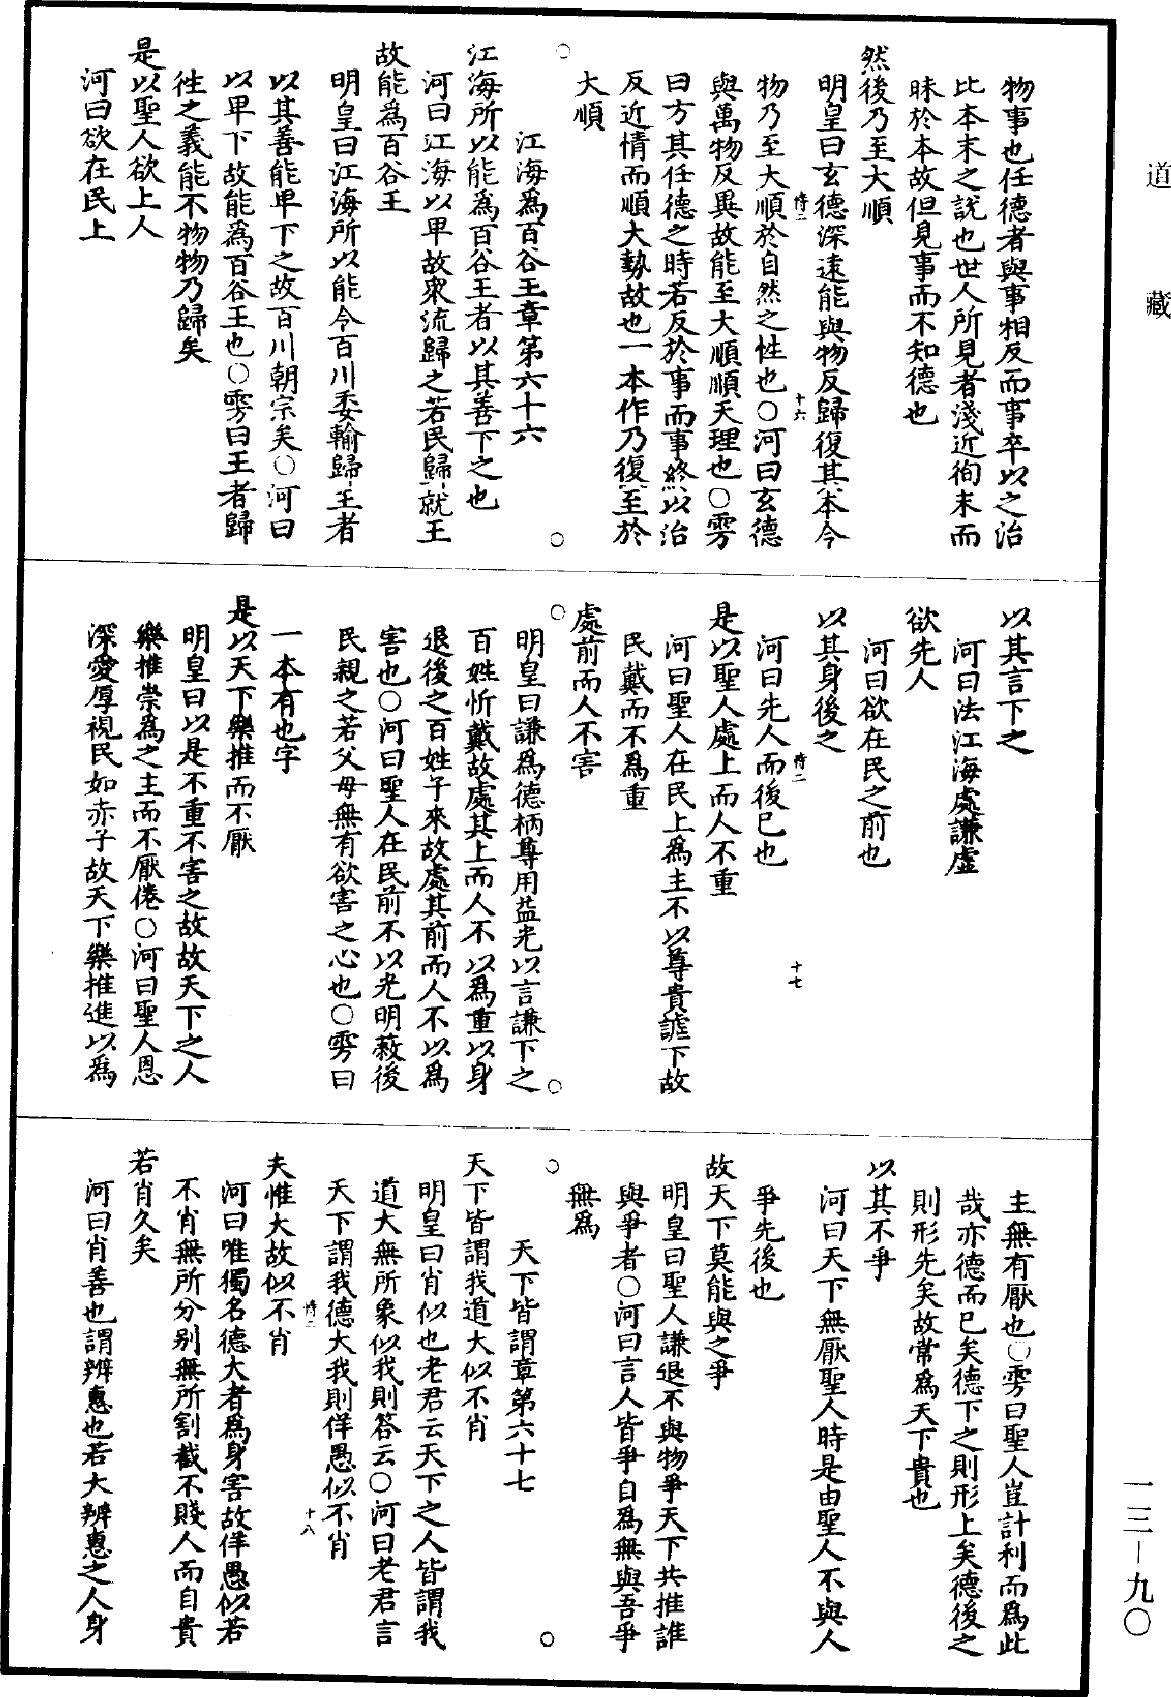 道藏
物事也任德者與事相反而事卒以之治
比本末之說也世人所見者淺近徇末而
昧於本故但見事而不知德也
然後乃至大順
明皇曰玄德深遠能與物反歸復其本令
物乃至大順於自然之性也○河曰玄德
與萬物反異故能至大順順天理也○雱
曰方其任德之時若反於事而事終以治
反近情而順大勢故也一本作乃復至於
大順
江海爲百谷王章第六十六
江海所以能爲百谷王者以其善下之也
河曰江海以卑故衆流歸之若民歸就王
故能爲百谷王
明皇曰江海所以能令百川委輸歸王者
以其善能卑下之故百川朝宗矣○河曰
以卑下故能爲百谷王也○雱曰王者歸
往之義能不物物乃歸矣
是以聖人欲上人
河曰欲在民上
以其言下之
河曰法江海處謙虛
欲先人
河曰欲在民之前也
以其身後之
河曰先人而後已也
是以聖人處上而人不重
河曰聖人在民上爲主不以尊貴謔下故
民戴而不爲重
處前而人不害
明皇曰謙爲德柄尊用益光以言謙下之
百姓忻戴故處其上而人不以爲重以身
退後之百姓子來故處其前而人不以爲
害也○河曰聖人在民前不以光明蔽後
民親之若父母無有欲害之心也○雱曰
一本有也字
是以天下樂推而不厭
明皇曰以是不重不害之故故天下之人
樂推崇爲之主而不厭倦○河曰聖人恩
深愛厚視民如赤子故天下樂推進以爲
主無有厭也○雱曰聖人豈計利而爲此
哉亦德而已矣德下之則形上矣德後之
則形先矣故常爲天下貴也
以其不爭
河曰天下無厭聖人時是由聖人不與人
爭先後也
故天下莫能與之爭
明皇曰聖人謙退不與物爭天下共推誰
與爭者○河曰言人皆爭自爲無與吾爭
無爲
天下皆謂章第六十七
天下皆謂我道大似不肖
明皇曰肖似也老君云天下之人皆謂我
道大無所象似我則答云○河曰老君言
天下謂我德大我則佯愚似不肖
夫惟大故似不肖
河曰唯獨名德大者爲身害故佯愚似若
不肖無所分別無所割截不賤人而自貴
若肖久矣
河曰肖善也謂辨惠也若大辨惠之人身
一三－九〇
十六
十七
十八